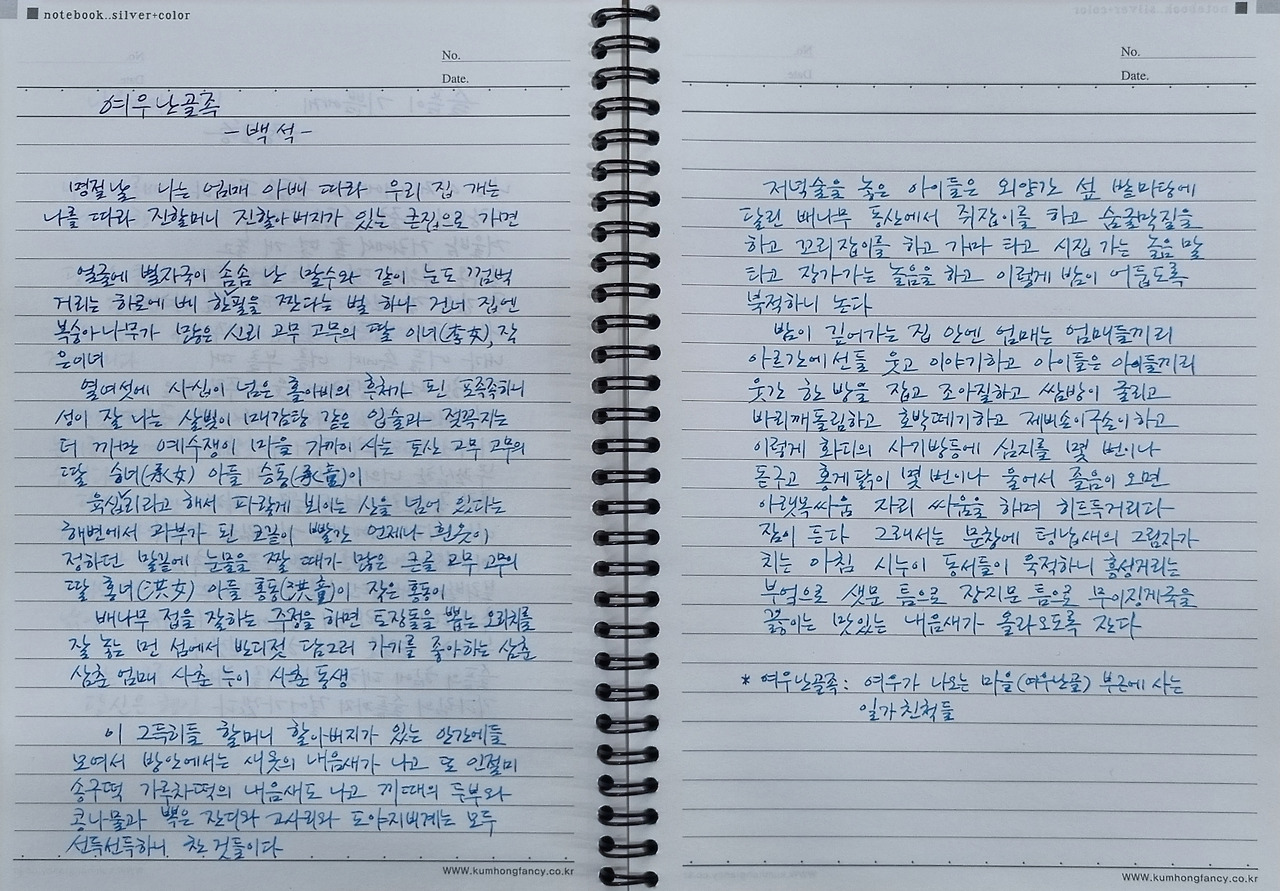 notebook..silver+color
No.
Date.
여우난골족
- 백석 -
명절날 나는 엄매 아배 따라 우리 집 개는
나를 따라 진할머니 진할아버지가 있는 큰집으로 가면
얼굴에 별자국이 솜솜 난 말수와 같이 눈도 껌벅
거리는 하로에 베 한필을 짠다는 벌 하나 건너 집엔
복숭아나무가 많은 신리 고무 고무의 딸 이녀(李女), 작
은이녀
열여섯에 사십이 넘은 홀아비의 후처가 된 포족족하니
성이 잘 나는 살빛이 매감탕 같은 입술과 젖꼭지는
더 까만 예수쟁이 마을 가까이 사는 토산 고무 고무의
딸 승녀(承女) 아들 승동(承童)이
육십리라고 해서 파랗게 뵈이는 산을 넘어 있다는
해변에서 과부가 된 코끝이 빨간 언제나 흰옷이
정하던 말끝에 눈물을 짤 때가 많은 큰골 고무 고무의
딸 홍녀(洪女) 아들 홍동(洪童)이 작은 홍동이
배나무 접을 잘하는 주정을 하면 토장돌을 뽑는 오리치를
잘 놓는 먼 섬에서 반디젓 담그러 가기를 좋아하는 삼춘
삼춘 엄매 사춘 누이 사춘 동생
이 그득히들 할머니 할아버지가 있는 안간에들
모여서 방안에서는 새옷의 내음새가 나고 또 인절미
송구떡 가루차떡의 내음새도 나고 끼때의 두부와
콩나물과 뽁은 잔디와 고사리와 도야지비계는 모두
선득선득하니 찬 것들이다
www.kumhongfancy.co.kr
No.
Date.
저녁술을 놓은 아이들은 외양간 섶 밭마당에
달린 배나무 동산에서 쥐잡이를 하고 숨굴막질을
하고 꼬리잡이를 하고 가마 타고 시집 가는 놀음 말
타고 장가가는 놀음을 하고 이렇게 밤이 어둡도록
북적하니 논다
밤이 깊어가는 집 안엔 엄매는 엄매들끼리
아르간에선들 웃고 이야기하고 아이들은 아이들끼리
웃간 한 방을 잡고 조아질하고 쌈방이 굴리고
바리깨돌림하고 호박떼기하고 제비손이구손이하고
이렇게 화디의 사기방등에 심지를 몇 번이나
돋구고 홍게닭이 몇 번이나 울어서 졸음이 오면
아랫목싸움 자리 싸움을 하며 히드득거리다
잠이 든다 그래서는 문창에 텅납새의 그림자가
치는 아침 시누이 동서들이 욱적하니 흥성거리는
부엌으로 샛문 틈으로 장지문 틈으로 무이징게국을
끓이는 맛있는 내음새가 올라오도록 잔다
* 여우난골족 : 여우가 나오는 마을(여우난골) 부근에 사는
일가친척들
www.kumhongfancy.co.kr